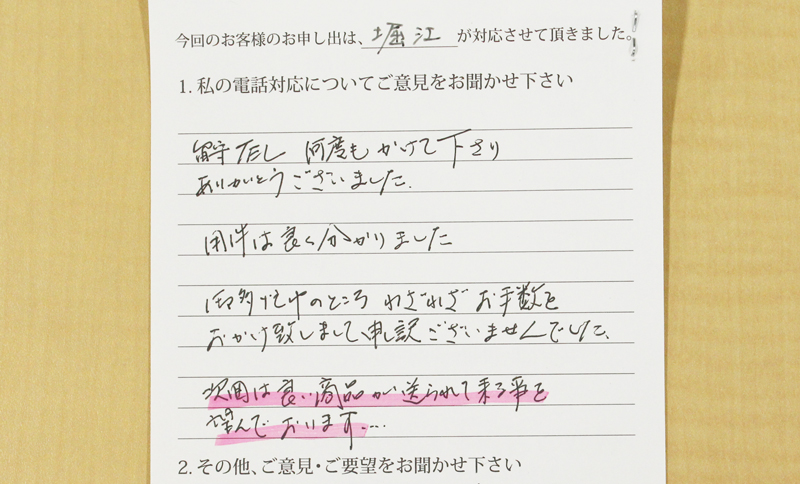 今回のお客様のお申し出は、堀江が対応させて頂きました。
1. 私の電話対応についてご意見をお聞かせ下さい
留守TEL 何度もかけて下さり
ありがとうございました.
用件は良く分かりました
御多忙中のところ わざわざ お手数を
おかけ致しまして申し訳ございませんでした、
次回は良い商品が送られて来る事を
望んでおります....
2. その他、ご意見・ご要望をお聞かせ下さい